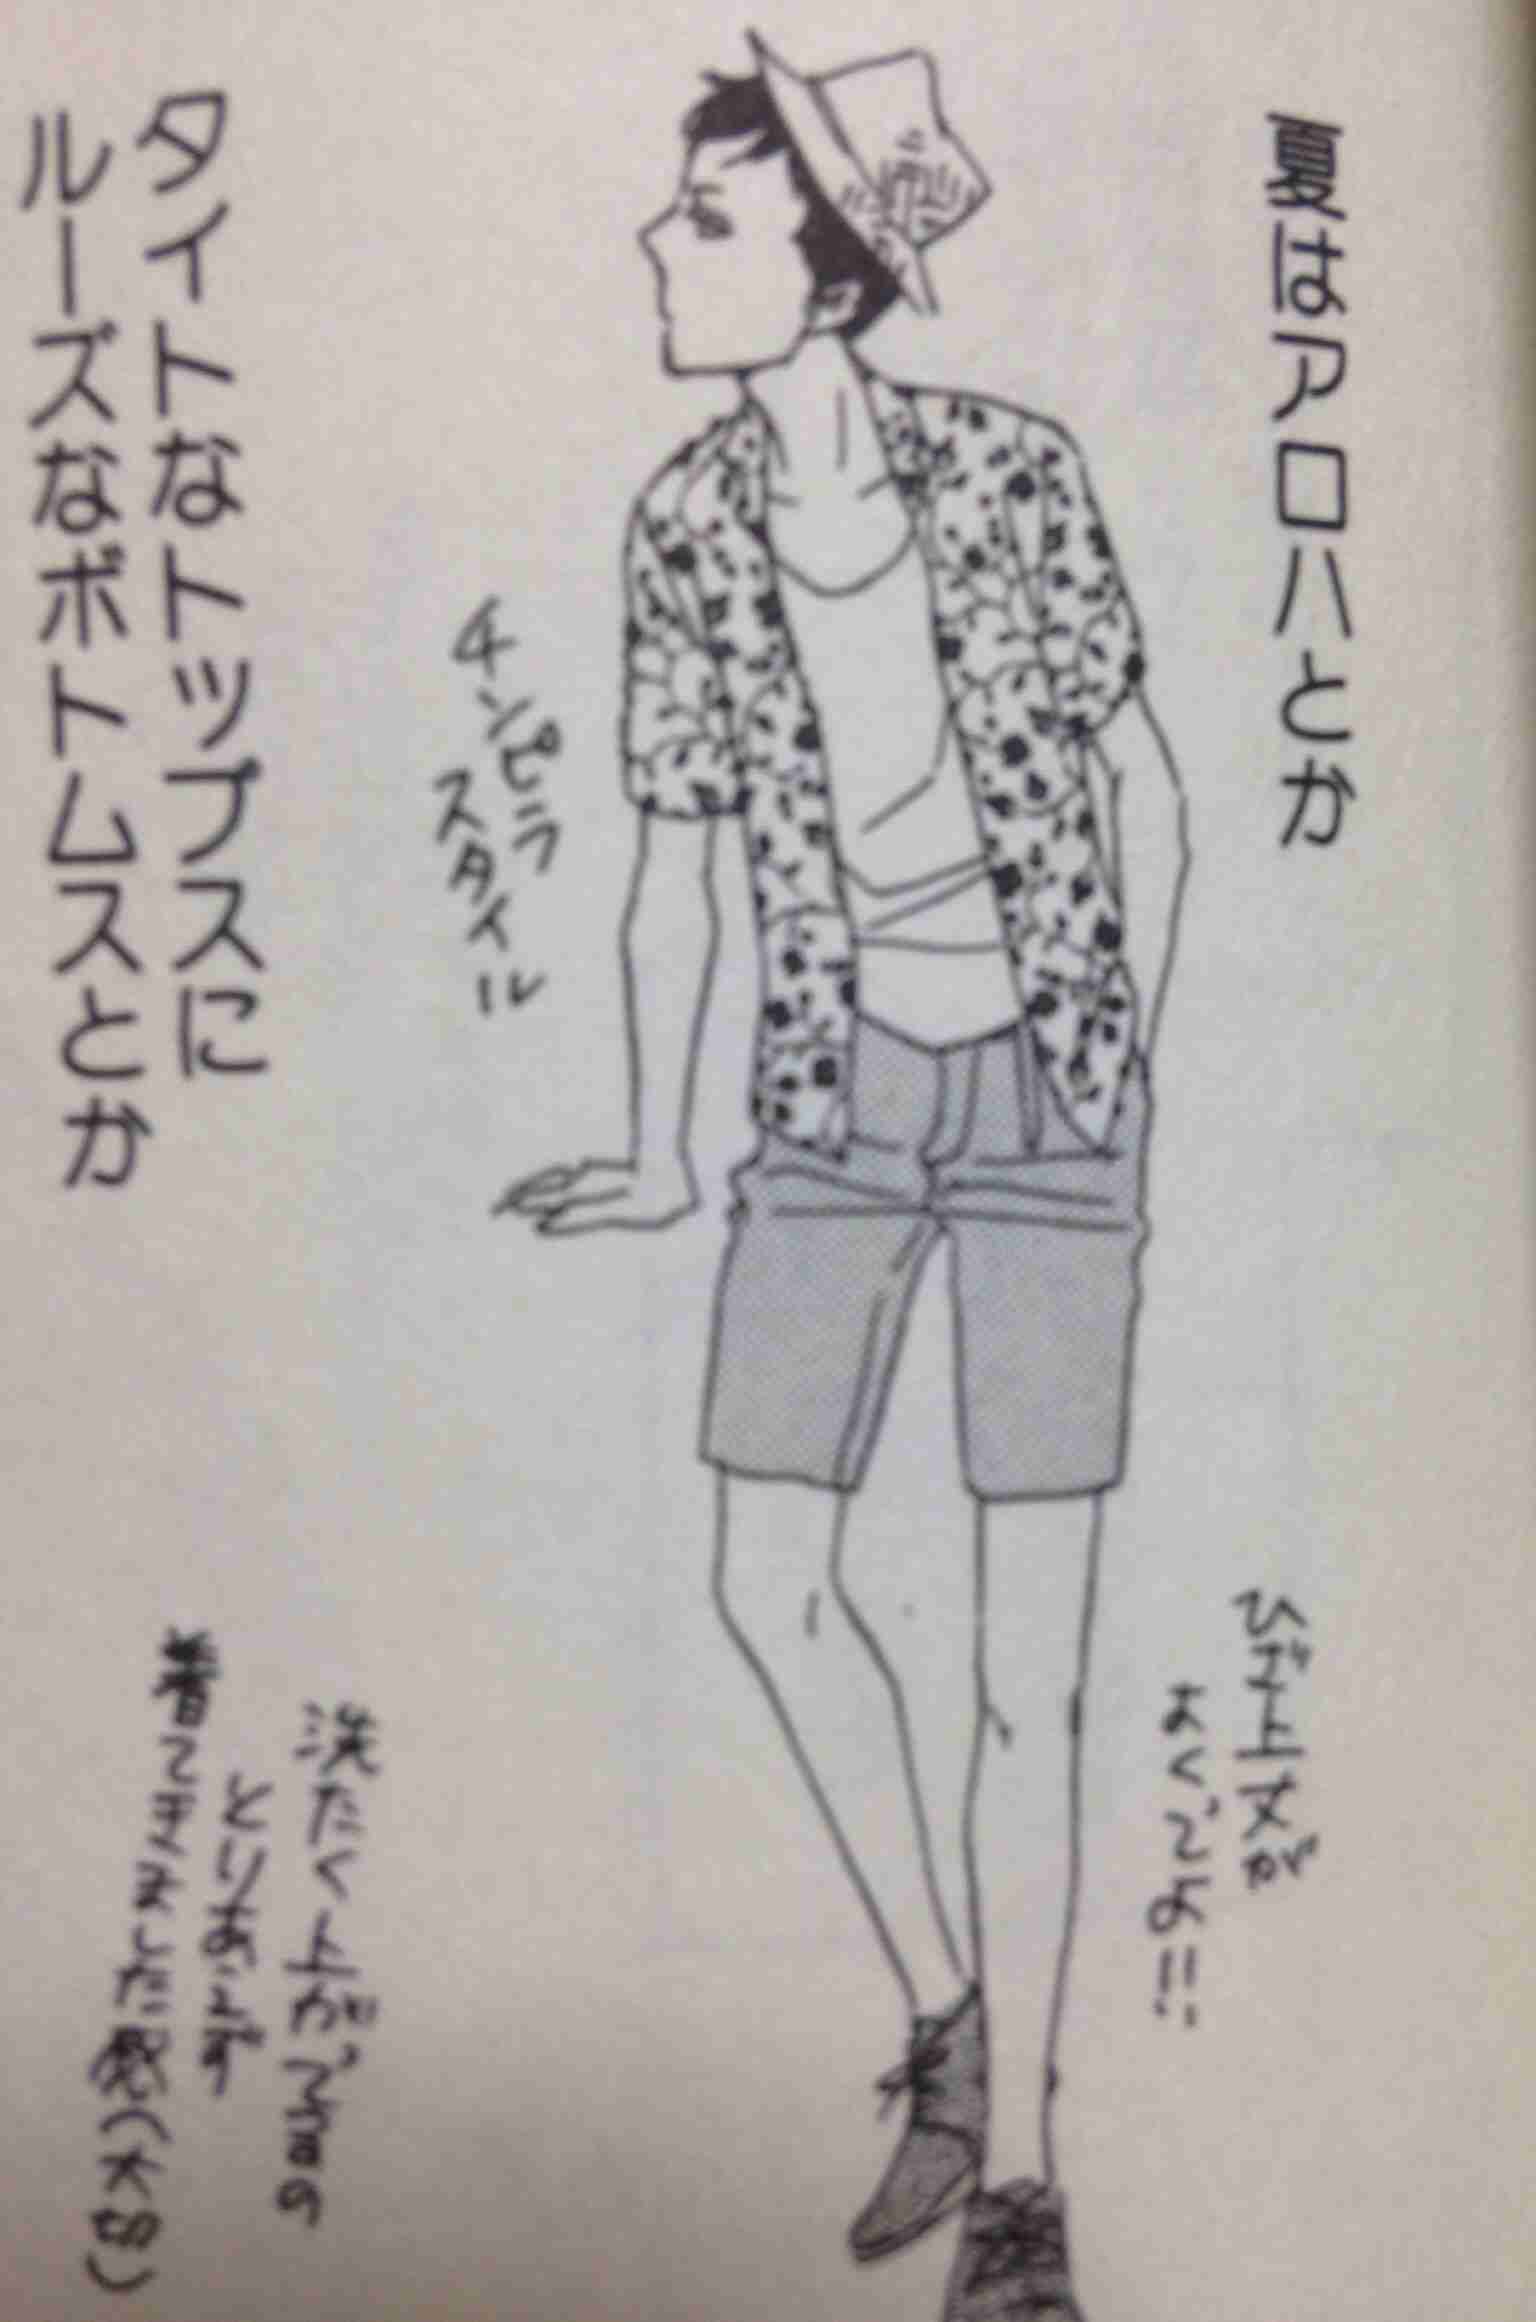 夏はアロハとか
ひざ上丈が
よくってよ!!
チンピラ
スタイル
タイトなトップスに
ルーズなボトムスとか
洗たく上がって
とりあえず
着てきました感(大切)